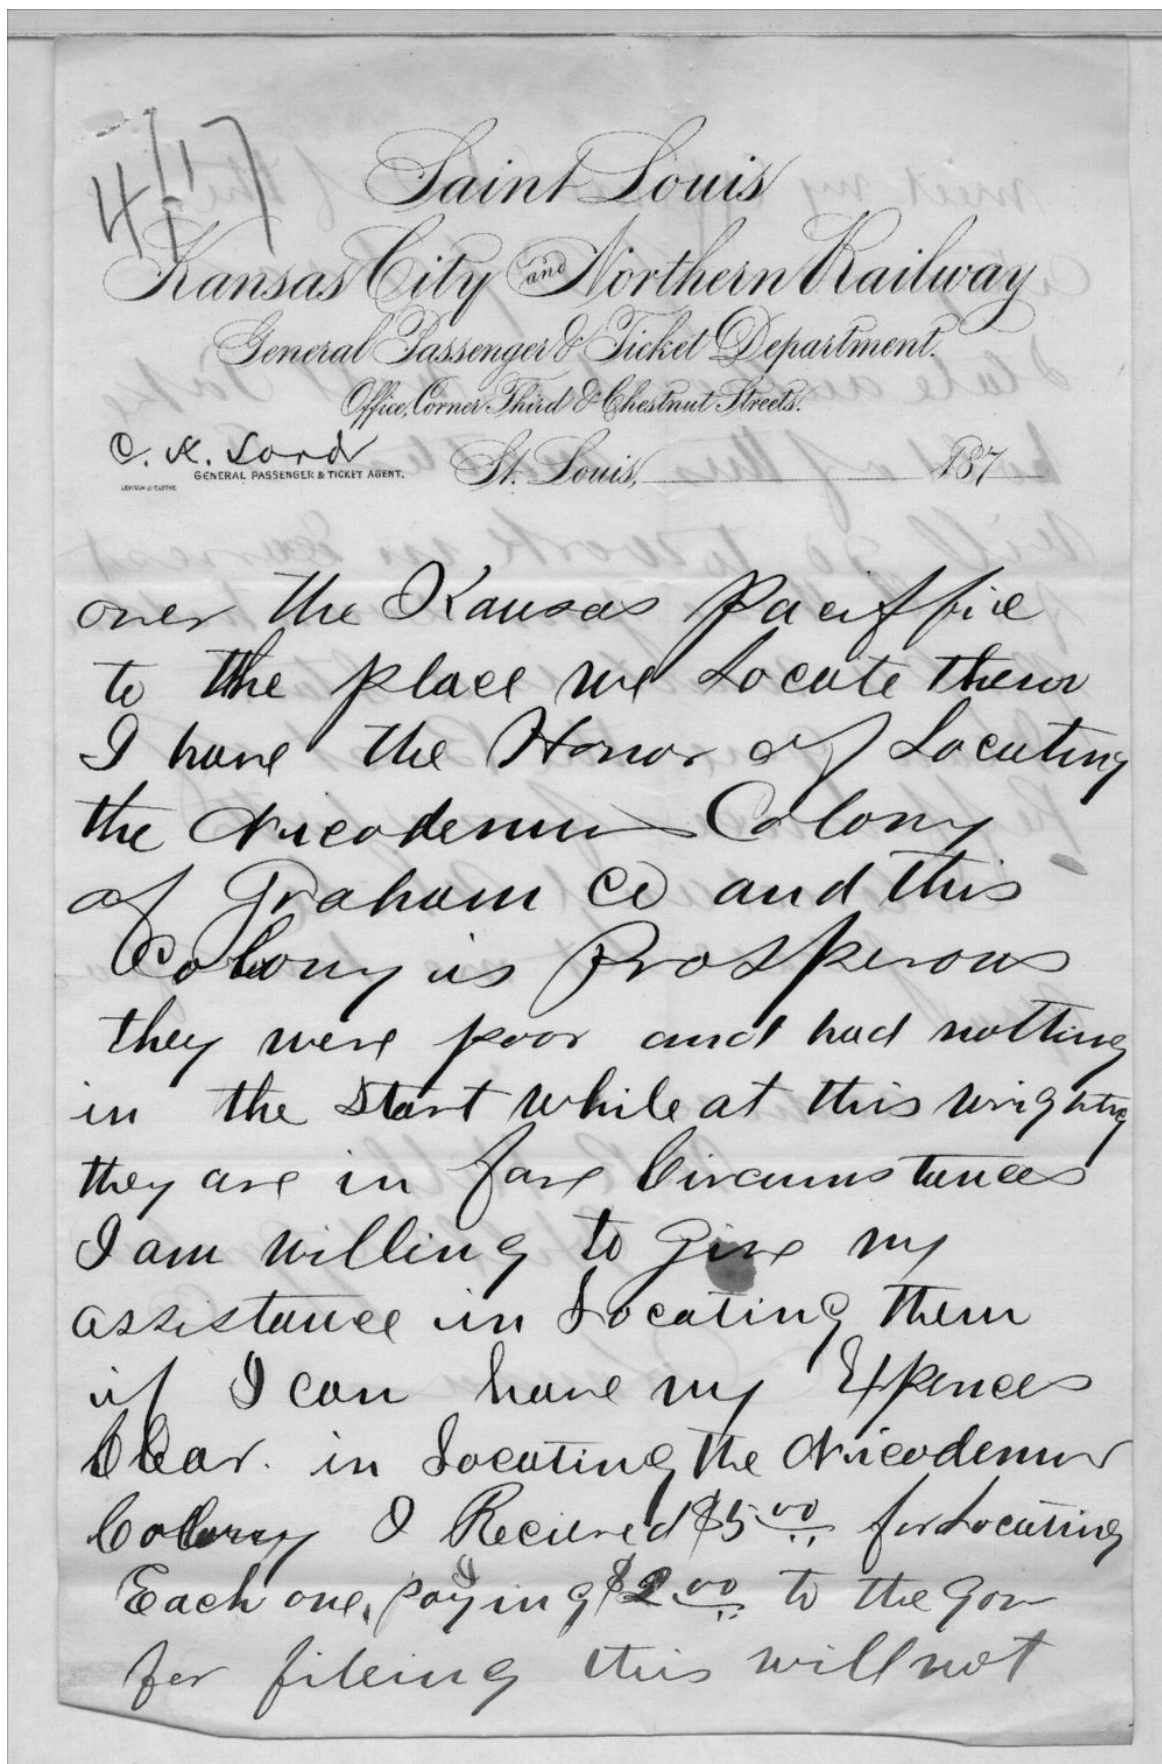 4/17
Saint Louis
Kansas City and Northern Railway
General Passenger & Ticket Department.
Office, Corner Third & Chestnut Streets.
C. K. Lord
GENERAL PASSENGER & TICKET AGENT.
St. Louis, 187
over the Kansas Paciffic
to the place we Locate them
I have the Honor of Locating
the Nicodemus Colony
of Graham Co and this
Colony is Prosperous
they were poor and had notting
in the start while at this wrighting
they are in fare Circumstances
I am willing to give my
assistance in Locating them
if I can have my Expences
Clear. in Locating the Nicodemus
Colony I Recieved $5.00 for Locating
Each one, I paying $2.00 to the Gov
for fileing this will not